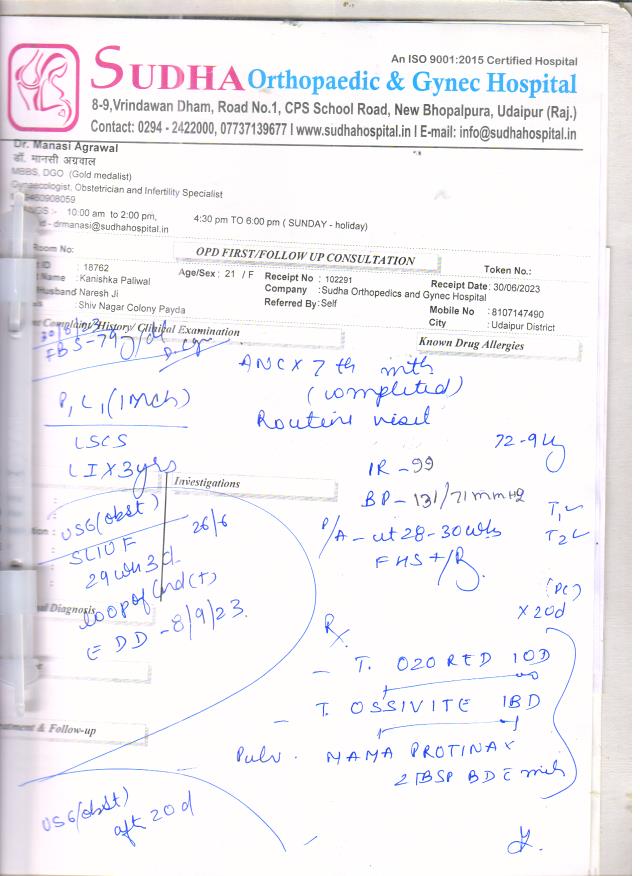 An ISO 9001:2015 Certified Hospital
SUDHA Orthopaedic & Gynec Hospital
8-9,Vrindawan Dham, Road No.1, CPS School Road, New Bhopalpura, Udaipur (Raj.)
Contact: 0294 - 2422000, 07737139677 I www.sudhahospital.in I E-mail: info@sudhahospital.in
Dr. Manasi Agrawal
डॉ. मानसी अग्रवाल
MBBS, DGO (Gold medalist)
Gynaecologist, Obstetrician and Infertility Specialist
460908059
NGS :- 10:00 am to 2:00 pm, 4:30 pm TO 6:00 pm ( SUNDAY - holiday)
- drmanasi@sudhahospital.in
Room No: OPD FIRST/FOLLOW UP CONSULTATION Token No.:
ID : 18762 Age/Sex : 21 / F Receipt No : 102291 Receipt Date : 30/06/2023
Name : Kanishka Paliwal Company : Sudha Orthopedics and Gynec Hospital
Husband Naresh Ji Referred By : Self Mobile No : 8107147490
: Shiv Nagar Colony Payda City : Udaipur District
Complaint/History/ Clinical Examination Known Drug Allergies
FBS-79
ANC X 7th mth
(completed)
Routine visit
P1 L1 (1 MCh)
LSCS
LIX3yrs
72-9 kg
IR - 99
BP - 131/71 mmHg
P/A - ut 28-30 wks
FHS +/R
T1 ✓
T2 ✓
Investigations
USG (obst) 26/6
SLIUF
29 wk 3 d
loop of Cord (+)
EDD - 8/9/23
Diagnosis
(PC)
X 20d
Rx
- T. O2O RED 1OD
- T. OSSIVITE 1BD
Pulv. MAMA PROTINAX
2 TBSP BD c milk
Treatment & Follow-up
USG (obst)
aft 20 d